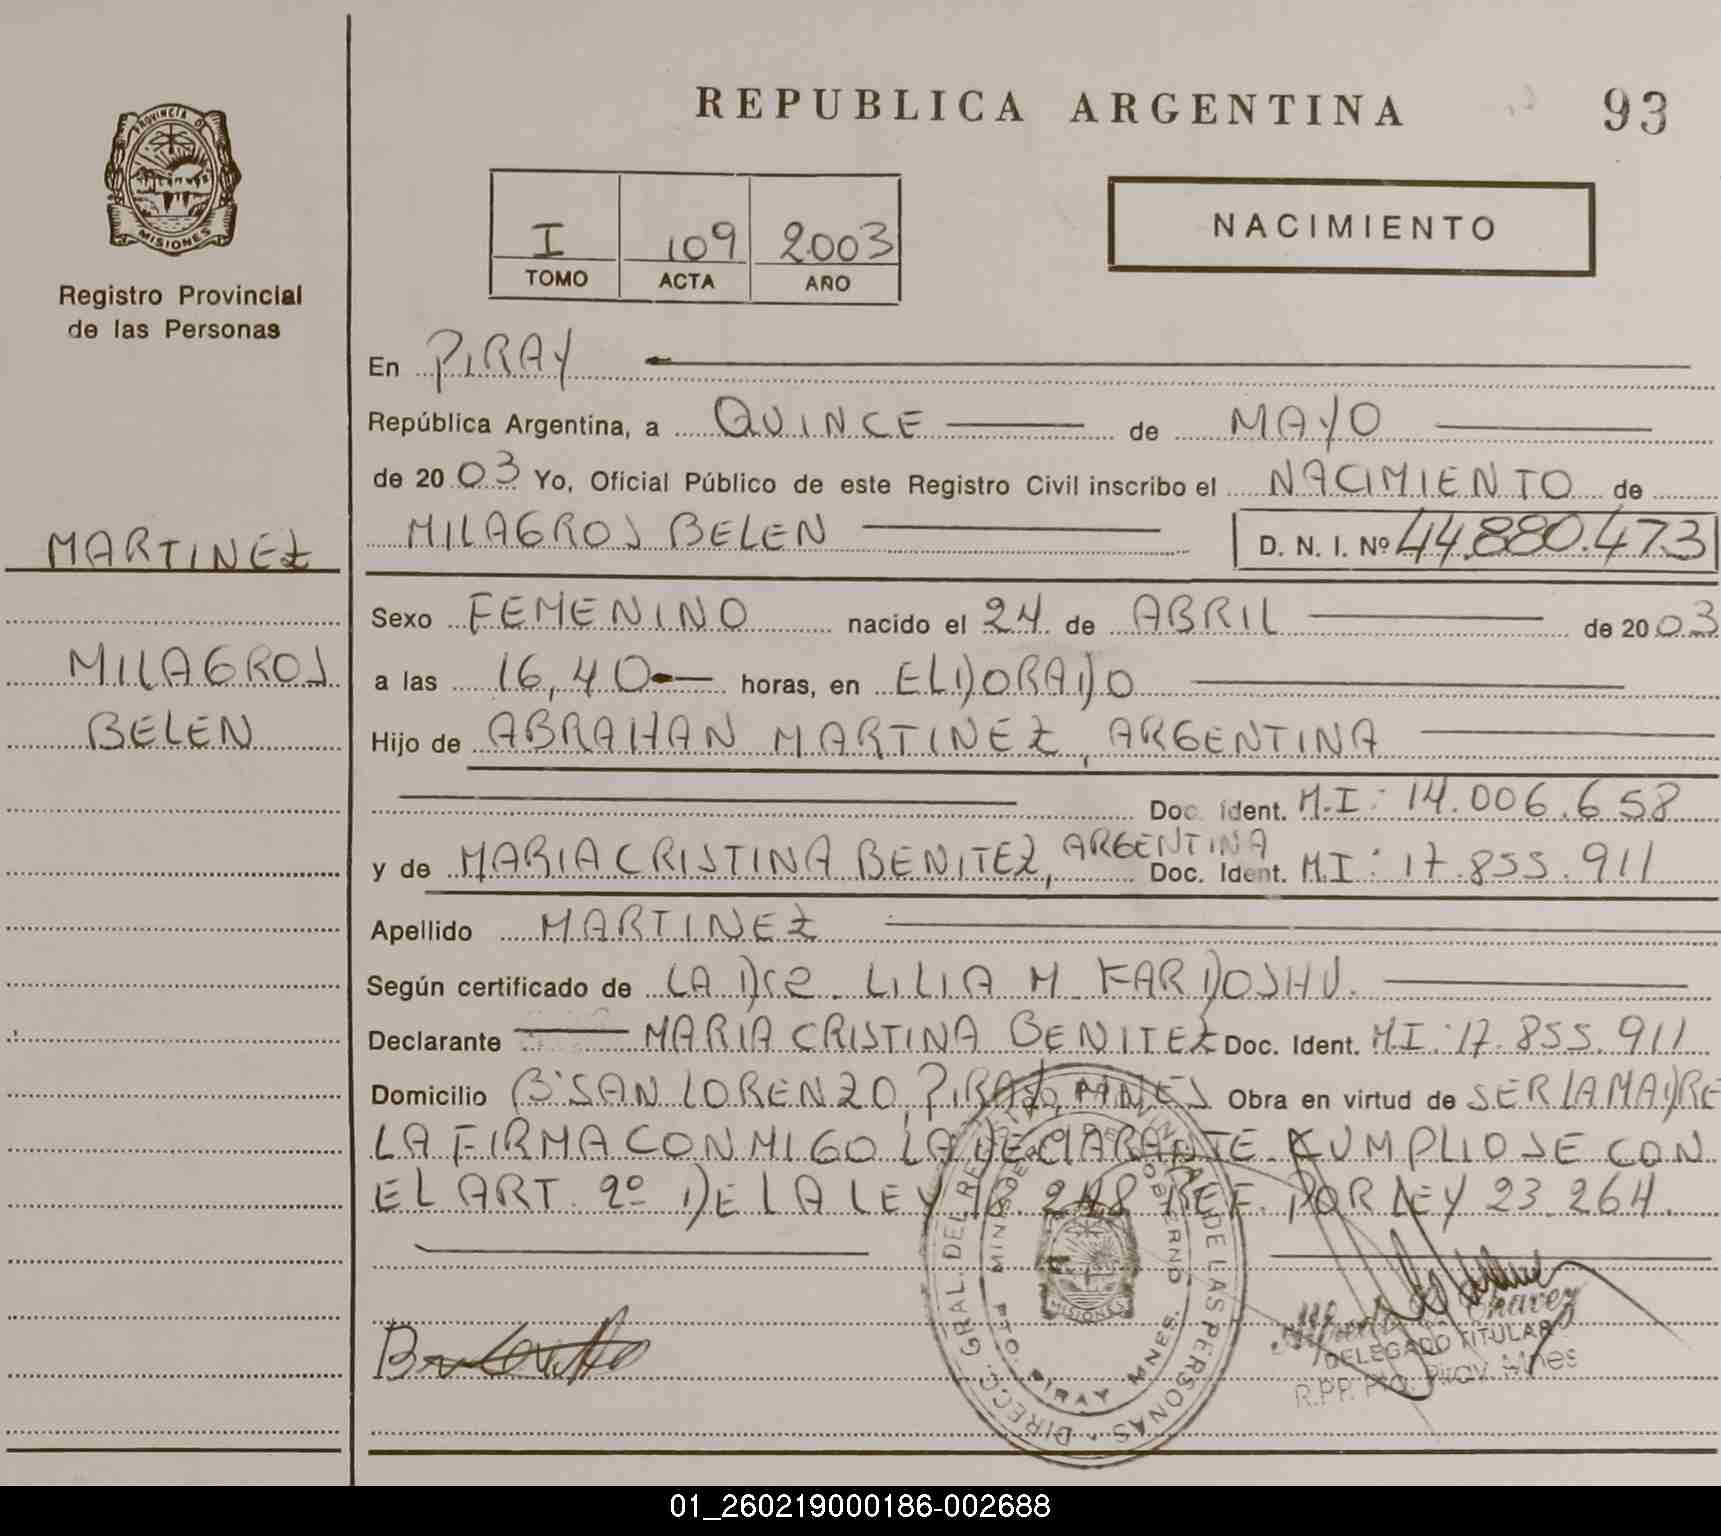 REPUBLICA ARGENTINA
93
PROVINCIA DE
MISIONES
Registro Provincial
de las Personas
I 109 2003
TOMO ACTA AÑO
NACIMIENTO
En PIRAY
República Argentina, a QUINCE de MAYO
de 2003 Yo, Oficial Público de este Registro Civil inscribo el NACIMIENTO de
MILAGROS BELEN D. N. I. Nº 44.880.473
MARTINEZ
MILAGROS
BELEN
Sexo FEMENINO nacido el 24 de ABRIL de 2003
a las 16,40 horas, en ELDORADO
Hijo de ABRAHAN MARTINEZ, ARGENTINA
Doc. Ident. M.I: 14.006.658
y de MARIA CRISTINA BENITEZ, ARGENTINA Doc. Ident. M.I: 17.855.911
Apellido MARTINEZ
Según certificado de LA DRA. LILIA M. KARDOSHU.
Declarante MARIA CRISTINA BENITEZ Doc. Ident. M.I: 17.855.911
Domicilio Bº SAN LORENZO, PIRAY, MNES Obra en virtud de SER LA MADRE
LA FIRMA CONMIGO LA DECLARANTE. CUMPLIOSE CON
EL ART. 2º DE LA LEY 18.248 REF. POR LEY 23.264.
DIRECC. GRAL. DEL REG. DE LAS PERSONAS
MINIS. DE GOBIERNO
MISIONES
PTO. PIRAY MNES.
Chavez
DELEGADO TITULAR
R.P.P. Pto. Piray. Mnes
01_260219000186-002688